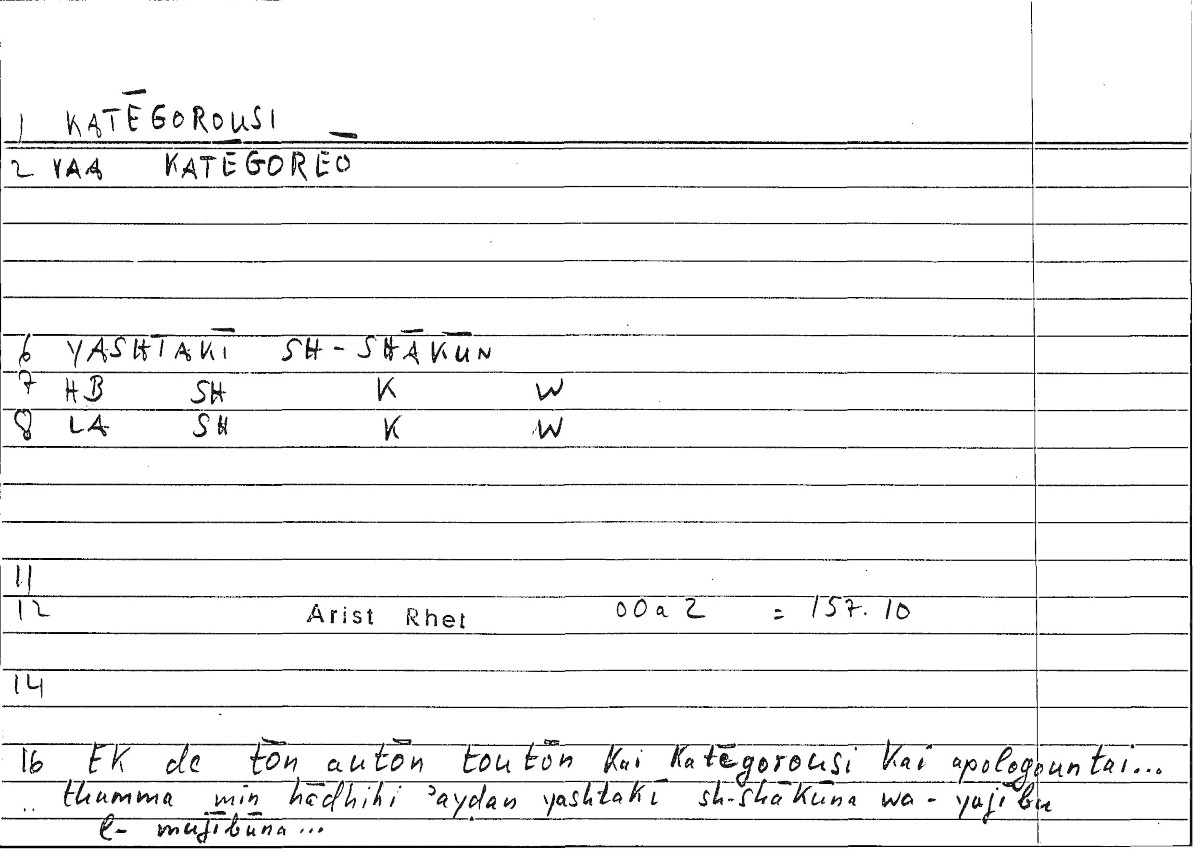 1 KATĒGOROUSI
2 VAA KATĒGOREŌ
6 YASHTAKĪ SH-SHĀKŪN
7 HB SH K W
8 LA SH K W
11
12 Arist Rhet 00a2 = 157.10
14
16 EK de tōn autōn toutōn kai katēgorousi kai apologountai...
.. thumma min hādhihi 'ayḍan yashtakī sh-shākūna wa-yujību
l-mujībūna...